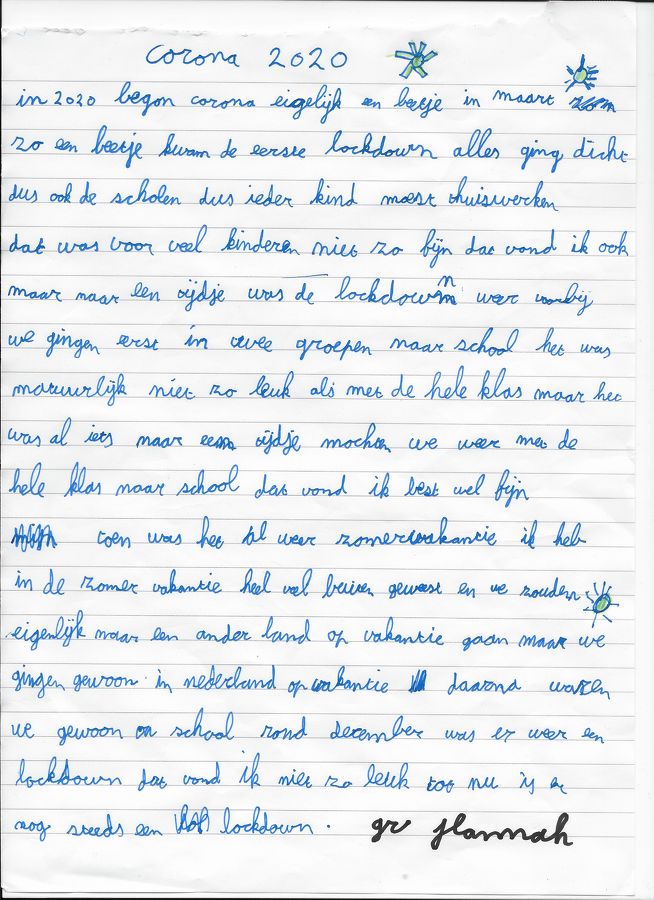 corona 2020
in 2020 begon corona eigelijk een beetje in maart
zo een beetje kwam de eerste lockdown alles ging dicht
dus ook de scholen dus ieder kind moest thuiswerken
dat was voor veel kinderen niet zo fijn dat vond ik ook
maar naar een tijdje was de lockdown weer voorbij
we gingen eerst in twee groepen naar school het was
natuurlijk niet zo leuk als met de hele klas maar het
was al iets naar een tijdje mochten we weer met de
hele klas naar school dat vond ik best wel fijn
toen was het al weer zomervakantie ik heb
in de zomer vakantie heel veel buiten geweest en we zouden
eigenlijk naar een ander land op vakantie gaan maar we
gingen gewoon in nederland op vakantie daarna waren
we gewoon op school rond december was er weer een
lockdown dat vond ik niet zo leuk tot nu is er
nog steeds een lockdown. gr Hannah